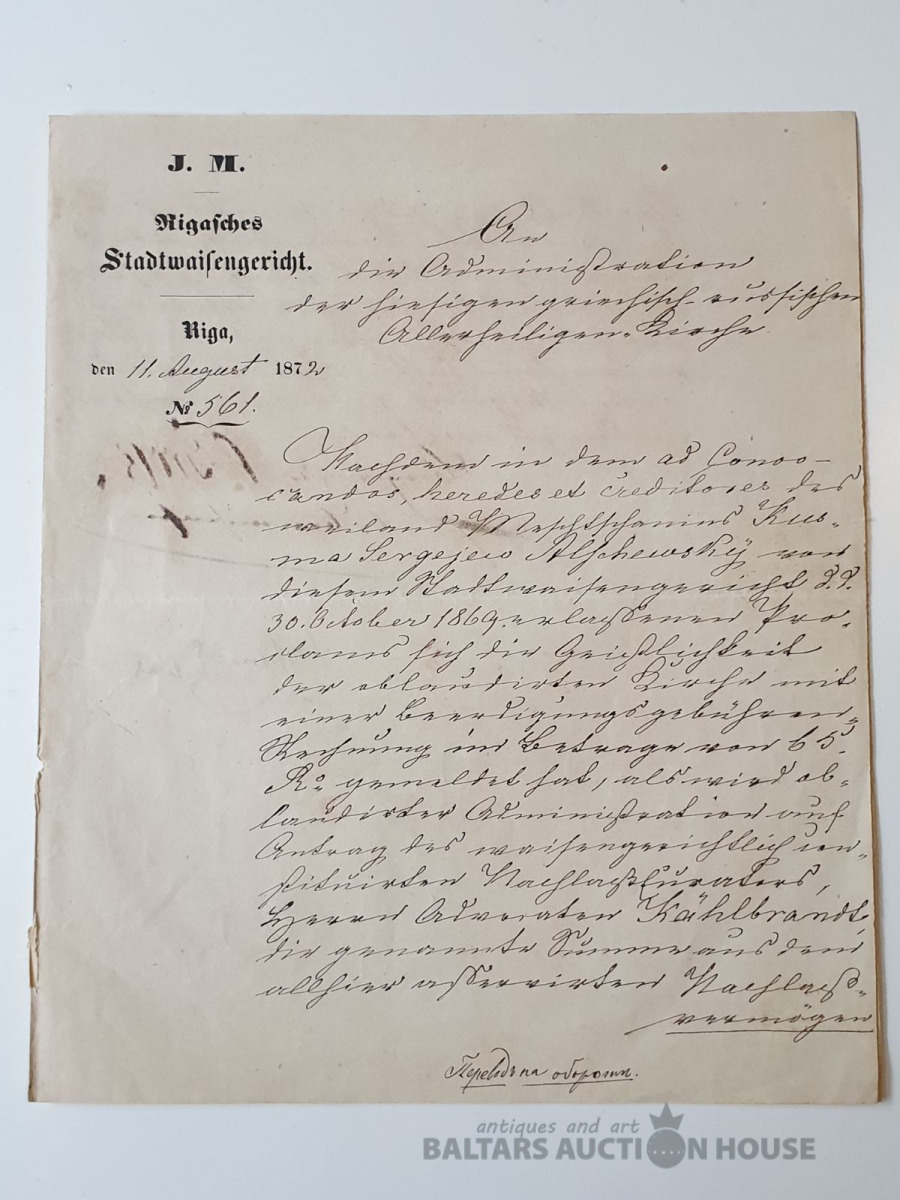 J. M.
Rigasches
Stadtwaisengericht.
Riga,
den 11. August 1872
№ 561.
An
die Administration
der hiesigen griechisch-russischen
Allerheiligen-Kirche
Nachdem in dem ad Convo-
candos, heredes et creditores des
weiland Meschtschanins Kus-
ma Sergejew Alschewsky von
diesem Stadtwaisengericht d.d.
30. October 1869 erlassenen Pro-
clams sich die Geistlichkeit
der oblaudirten Kirche mit
einer Beerdigungsgebühren-
Rechnung im Betrage von 65
R° gemeldet hat, als wird ob-
laudirter Administration auf
Antrag des waisengerichtlich con-
stituirten Nachlaßcurators,
Herrn Advocaten Kählbrandt,
die genannte Summe aus dem
allhier asservirten Nachlaß-
vermögen
Переводъ на оборотѣ.
antiques and art
BALTARS AUCTION HOUSE